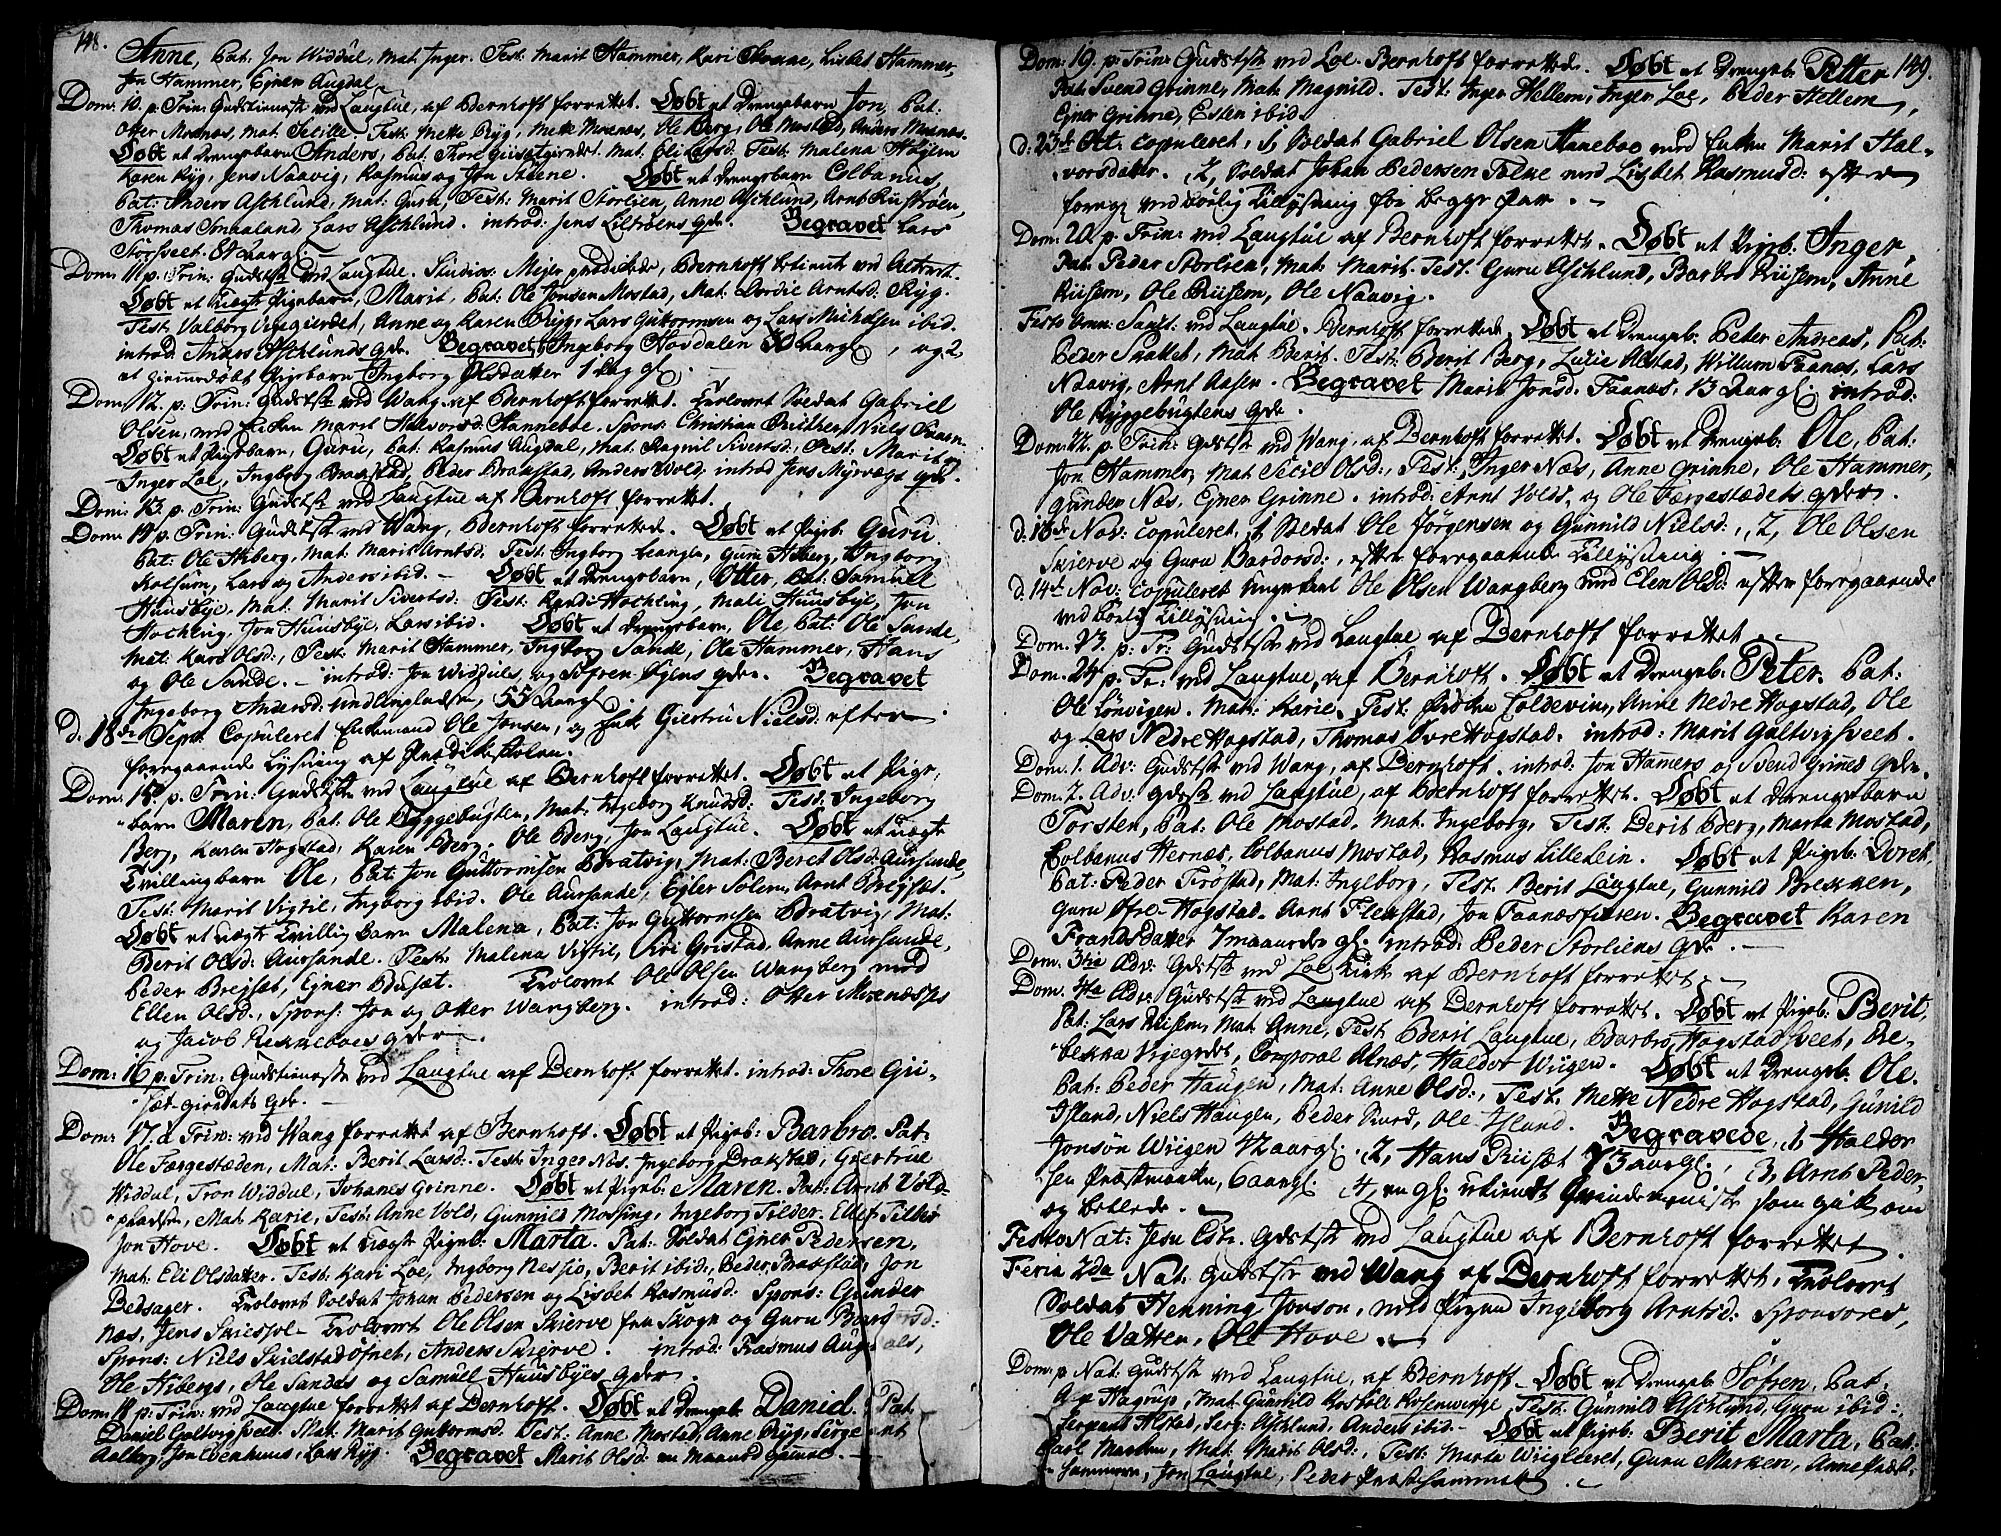 148.
Anne, Pat: Jon Widdul, Mat: Inger. Test: Marit Hammer, Kari Lisbet Hammer,
Jon Hammer, Ejner Augdal
Dom: 10. p. Trin: Gudstieneste ved Laugtue, af Bernhoft forrettet. Døbt et Drengebarn Jon, Pat:
Otter Moenæs, Mat: Secille, Test: Mette Ryg, Mette Moenæs, Ole Berg, Ole Mostad, Anders Moenæs.
Døbt et Drengebarn Anders, Pat: Thore Giisetgierdet. Mat: Eli Larsd: Test: Malena
Karen Ryg, Jens Naavig, Rasmus og Jon Steene. Døbt et Drengebarn Colbanus,
Pat: Anders Aschlund, Mat: Guru, Test: Marit Storlien, Anne Aschlund, Arnt
Thomas Smaaland, Lars Aschlund. introd: Jens Lilteøens qde. Begravet Lars
84 Aar gl.
Dom: 11 p. Trin: Gudstst ved Laugtue. Studios: Mejer prædikede, Bernhoft betiente ved Alteret.
Døbt et uægte Pigebarn, Marit, Pat: Ole Jonsen Mostad, Mat: Dordie Arntsd: Ryg.
Test: Valborg Viegierdet, Anne og Karen Ryg, Lars Guttormsen og Lars Michelsen ibid.
introd: Anders Aschlunds qde. Begravet 1, Ingeborg Hovdalen Aar gl, og 2,
et hiemmedøbt Pigebarn Ingborg Olsdatter 1 Dag gl.
Dom: 12. p: Trin: Gudstst ved Wang af Bernhoft forrettet. Trolovet Soldat Gabriel
Olsen, med Enken Marit Halvorsd: Hanneboe. Spons: Christian Niels
Døbt et Pigebarn, Guru, Pat: Rasmus Augdal, Mat: Magnil Sivertsd: Test: Marit og
Inger Loe, Ingborg Brakstad, Peder Brakstad, Anders Wold. introd Jens Myrvægs qde.
Dom: 13. p. Trin: Gudstst ved Laugtue af Bernhoft forrettet.
Dom: 14 p. Trin: Gudstst ved Wang, Bernhoft forrettede. Døbt et Pigeb: Guru,
Pat: Ole Hiberg, Mat: Marit Arntsd: Test: Ingborg Guru Hiberg, Ingborg
Lars og Anders ibid. - Døbt et Drengebarn, Otter, Pat: Samuel
Huusbye, Mat: Marit Sivertsd: Test: Randi Hochling, Mali Huusbye, Jon
Hochling, Jon Huusbye, Lars ibid. Døbt et Drengebarn, Ole, Pat: Ole Sande,
Mat: Kari Olsd:, Test: Marit Hammer, Ingborg Sande, Ole Hammer, Hans
og Ole Sande. - introd: Jon Widduls, og Søfren Øyens qder. Begravet
Ingeborg Andersd: 55 Aar gl.
d. 18de Sept: Copuleret Enkemand Ole Jonsen, og Enke Giertru Nielsd: efter
foregaaende Lysning af Prædikestolen.
Dom: 15de p. Trin: Gudstste ved Laugtue af Bernhoft forrettet. Døbt et Pige-
barn Maren, Pat: Ole Ryggebugten, Mat: Ingeborg Knudsd: Test: Ingeborg
Berg, Karen Hogstad, Karen Berg. Ole Berg, Jon Laugtue. Døbt et uægte
Tvillingbarn Ole, Pat: Jon Guttormsen Bratvig, Mat: Beret Olsd: Aursunde,
Test: Marit Vigtil, Ingborg ibid. Ole Aursunde, Ejler Solem, Arnt Brejset.
Døbt et uægte Tvillig barn Malena, Pat: Jon Guttormsen Bratvig, Mat:
Berit Olsd: Aursunde. Test: Malena Vigtil, Kiri Gristad, Anne Aursunde,
Peder Brejset, Ejner Busæt. Trolovet Ole Olsen Wangberg med
Ellen Olsd:, Spons: Jon og Otter Wangberg. introd: Otter Moenæsses
og Jacob Rekneboes qder.
Dom: 16 p: Trin: Gudstieneste ved Laugtue af Bernhoft forrettet. introd: Thore Gii-
sæt-gierdets qde. -
Dom: 17. p Trin: ved Wang forrettet af Bernhoft. Døbt et Pigeb: Barbro. Pat:
Ole Færgestæden, Mat: Berit Larsd: Test: Inger Næs, Ingeborg Brakstad, Giertrue
Widdul, Tron Widdul, Johanes Grinne. Døbt et Pigeb: Maren. Pat: Arnt Vold-
pladsen, Mat: Karie, Test: Anne Vold, Gunnild Mossing, Ingeborg Tilder, Ellef Tilder
Jon Hove. Døbt et uægte Pigeb: Marta. Pat: Soldat Ejner Pedersen,
Mat: Eli Olsdatter. Test: Kari Loe, Ingborg Nessio, Berit ibid:, Peder Brakstad, Jon
Bedsager. Trolovet Soldat Johan Pedersen og Lisbet Rasmusd: Spons: Gunder
Næs, Jens Skiessol - Trolovet Ole Olsen Skierve fra Skogn og Guru Bardorsd:
Spons: Niels Skielstadøfnet, Anders Skierve. introd: Rasmus Augdals,
Ole Hibergs, Ole Sandes og Samuel Huusbyes qder.
Dom: 18 p: Trin: ved Laugtue forrettet af Bernhoft. Døbt et Drengeb: Daniel. Pat
Daniel Galtvigsveet. Mat: Marit Guttormsd: Test: Anne Mostad, Anne Ryg, Sergeant
Aalberg, Jon Evenhuus, Lars Ryg. Begravet Marit Olsd: en Maaned gamel.
8
10
149.
Dom: 19. p. Trin: Gudstst ved Loe. Bernhoft forrettede. Døbt et Drengeb: Petter
Pat: Svend Grinne, Mat: Magnild. Test: Inger Hellem, Inger Loe, Peder Hellem,
Ejner Grinne, Esten ibid.
d: 23de Oct: Copuleret, 1, Soldat Gabriel Olsen Hanneboe med Enken Marit Hal-
vorsdatter. 2, Soldat Johan Pedersen med Lisbet Rasmusd: efter
foreg: ved børlig Tillysning for begge Par. -
Dom: 20. p. Trin: ved Laugtue af Bernhoft forrettet. Døbt et Pigeb: Inger,
Pat: Peder Storlien, Mat: Marit. Test: Guru Aschlund, Barbro Riisem, Anne
Riisem, Ole Riisem, Ole Naavig.
Festo Omn: Sanct: ved Laugtue. Bernhoft forrettede. Døbt et Drengeb: Peder Andreas, Pat:
Peder Mat: Berit. Test: Berit Berg, Lucie Alstad, Willum Faanes, Lars
Naavig, Arnt Aasen. Begravet Marit Jonsd: Faanæs, 13 Aar gl: introd:
Ole Ryggebugtens qde.
Dom: 22. p. Trin: Gudstst: ved Wang, af Bernhoft forrettet. Døbt et Drengeb: Ole, Pat:
Jon Hammer, Mat: Secil Olsd:, Test: Inger Næs, Anne Grinne, Ole Hammer,
Gunder Næs, Ejner Grinne. introd: Arnt Volds, og Ole Færgestædets qder.
d. 13de Nov: Copuleret, 1, Soldat Ole Jørgensen og Gunnild Nielsd:, 2, Ole Olsen
Skierve og Guru Bardorsd:, efter foregaaende Tillysning.
d. 14de Nov: Copuleret Ungekarl Ole Olsen Wangberg med Elen Olsd: efter foregaaende
ved børlig Tillysning.
Dom: 23. p: Tr: Gudstst ved Laugtue af Bernhoft forrettet
Dom: 24 p. Tr: ved Laugtue, af Bernhoft. Døbt et Drengeb: Peter. Pat:
Ole Lønvigen. Mat: Karie. Test: Coldevin, Anne Nedre Hogstad, Ole
og Lars Nedre Hogstad, Thomas Øvre Hogstad. introd: Marit Galtvigsveet.
Dom. 1. Adv: Gudstst ved Wang, af Bernhoft. introd: Jon Hamers og Svend Grines qder.
Dom: 2. Adv: Gdstst ved Laugtue, af Bernhoft forrettet. Døbt et Drengebarn
Torsten, Pat: Ole Mostad. Mat: Ingeborg, Test: Berit Berg, Marta Mostad,
Colbanus Hernæs, Colbanus Mostad, Rasmus Lillelein. Døbt et Pigeb: Doret,
Pat: Peder Trøstad, Mat: Ingeborg, Test: Berit Laugtue, Gunnild Brekken,
Guru Øfre-Hogstad. Arnt Flekstad, Jon Faanæsfiksen. Begravet Karen
Frandsdatter 7 maaneder gl. introd: Peder Storliens qde.
Dom: 3tia Adv: Gdstst ved Loe Kirke af Bernhoft forrettet. -
Dom: 4ta Adv: Gudstst ved Laugtue af Bernhoft forrettet. Døbt et Pigeb: Berit,
Pat: Lars Riisem, Mat: Anne, Test: Berit Laugtue, Barbro Hogstadsveet, Re-
bekka Viegerdet, Corporal Alnæs, Haldor Wiigen. Døbt et Drengeb: Ole.
Pat: Peder Haugen, Mat: Anne Olsd:, Test: Mette Nedre Hogstad, Gunild
Island, Niels Haugen, Peder Ole Island. Begravede, 1, Haldor
Jonsøn Wiigen 42 aar gl. 2, Hans Riisæt 73 aar gl., 3, Arnt Peder-
sen Præstmarken, 6 aar gl. 4, en gl: ukiendt Qvindemenske som gik om
og betlede.
Festo Nat: Jesu Chr: Gdstst ved Laugtue af Bernhoft forrettet.
Feria 2da Nat: Gudstst ved Wang af Bernhoft forrettet. Trolovet
Soldat Henning Jonson, med Pigen Ingeborg Arntsd: Sponsores,
Ole Vatten, Ole Hove.
Dom: p. Nat: Gudstst ved Laugtue, af Bernhoft - Døbt et Drengeb: Søfren, Pat:
Hagrup, Mat: Gunhild Rosenvinge Test: Gunnild Aschlund, Guru ibid:
Sergeant Alstad, Serg: Aschlund, Anders ibid - Døbt et Pigeb: Berit Marta, Pat:
Carl Marken, Mat: Marit Olsd:, Test: Marta Guru Marken, Anne Præst-
hammer, Jon Laugtue, Peder Præsthammer.